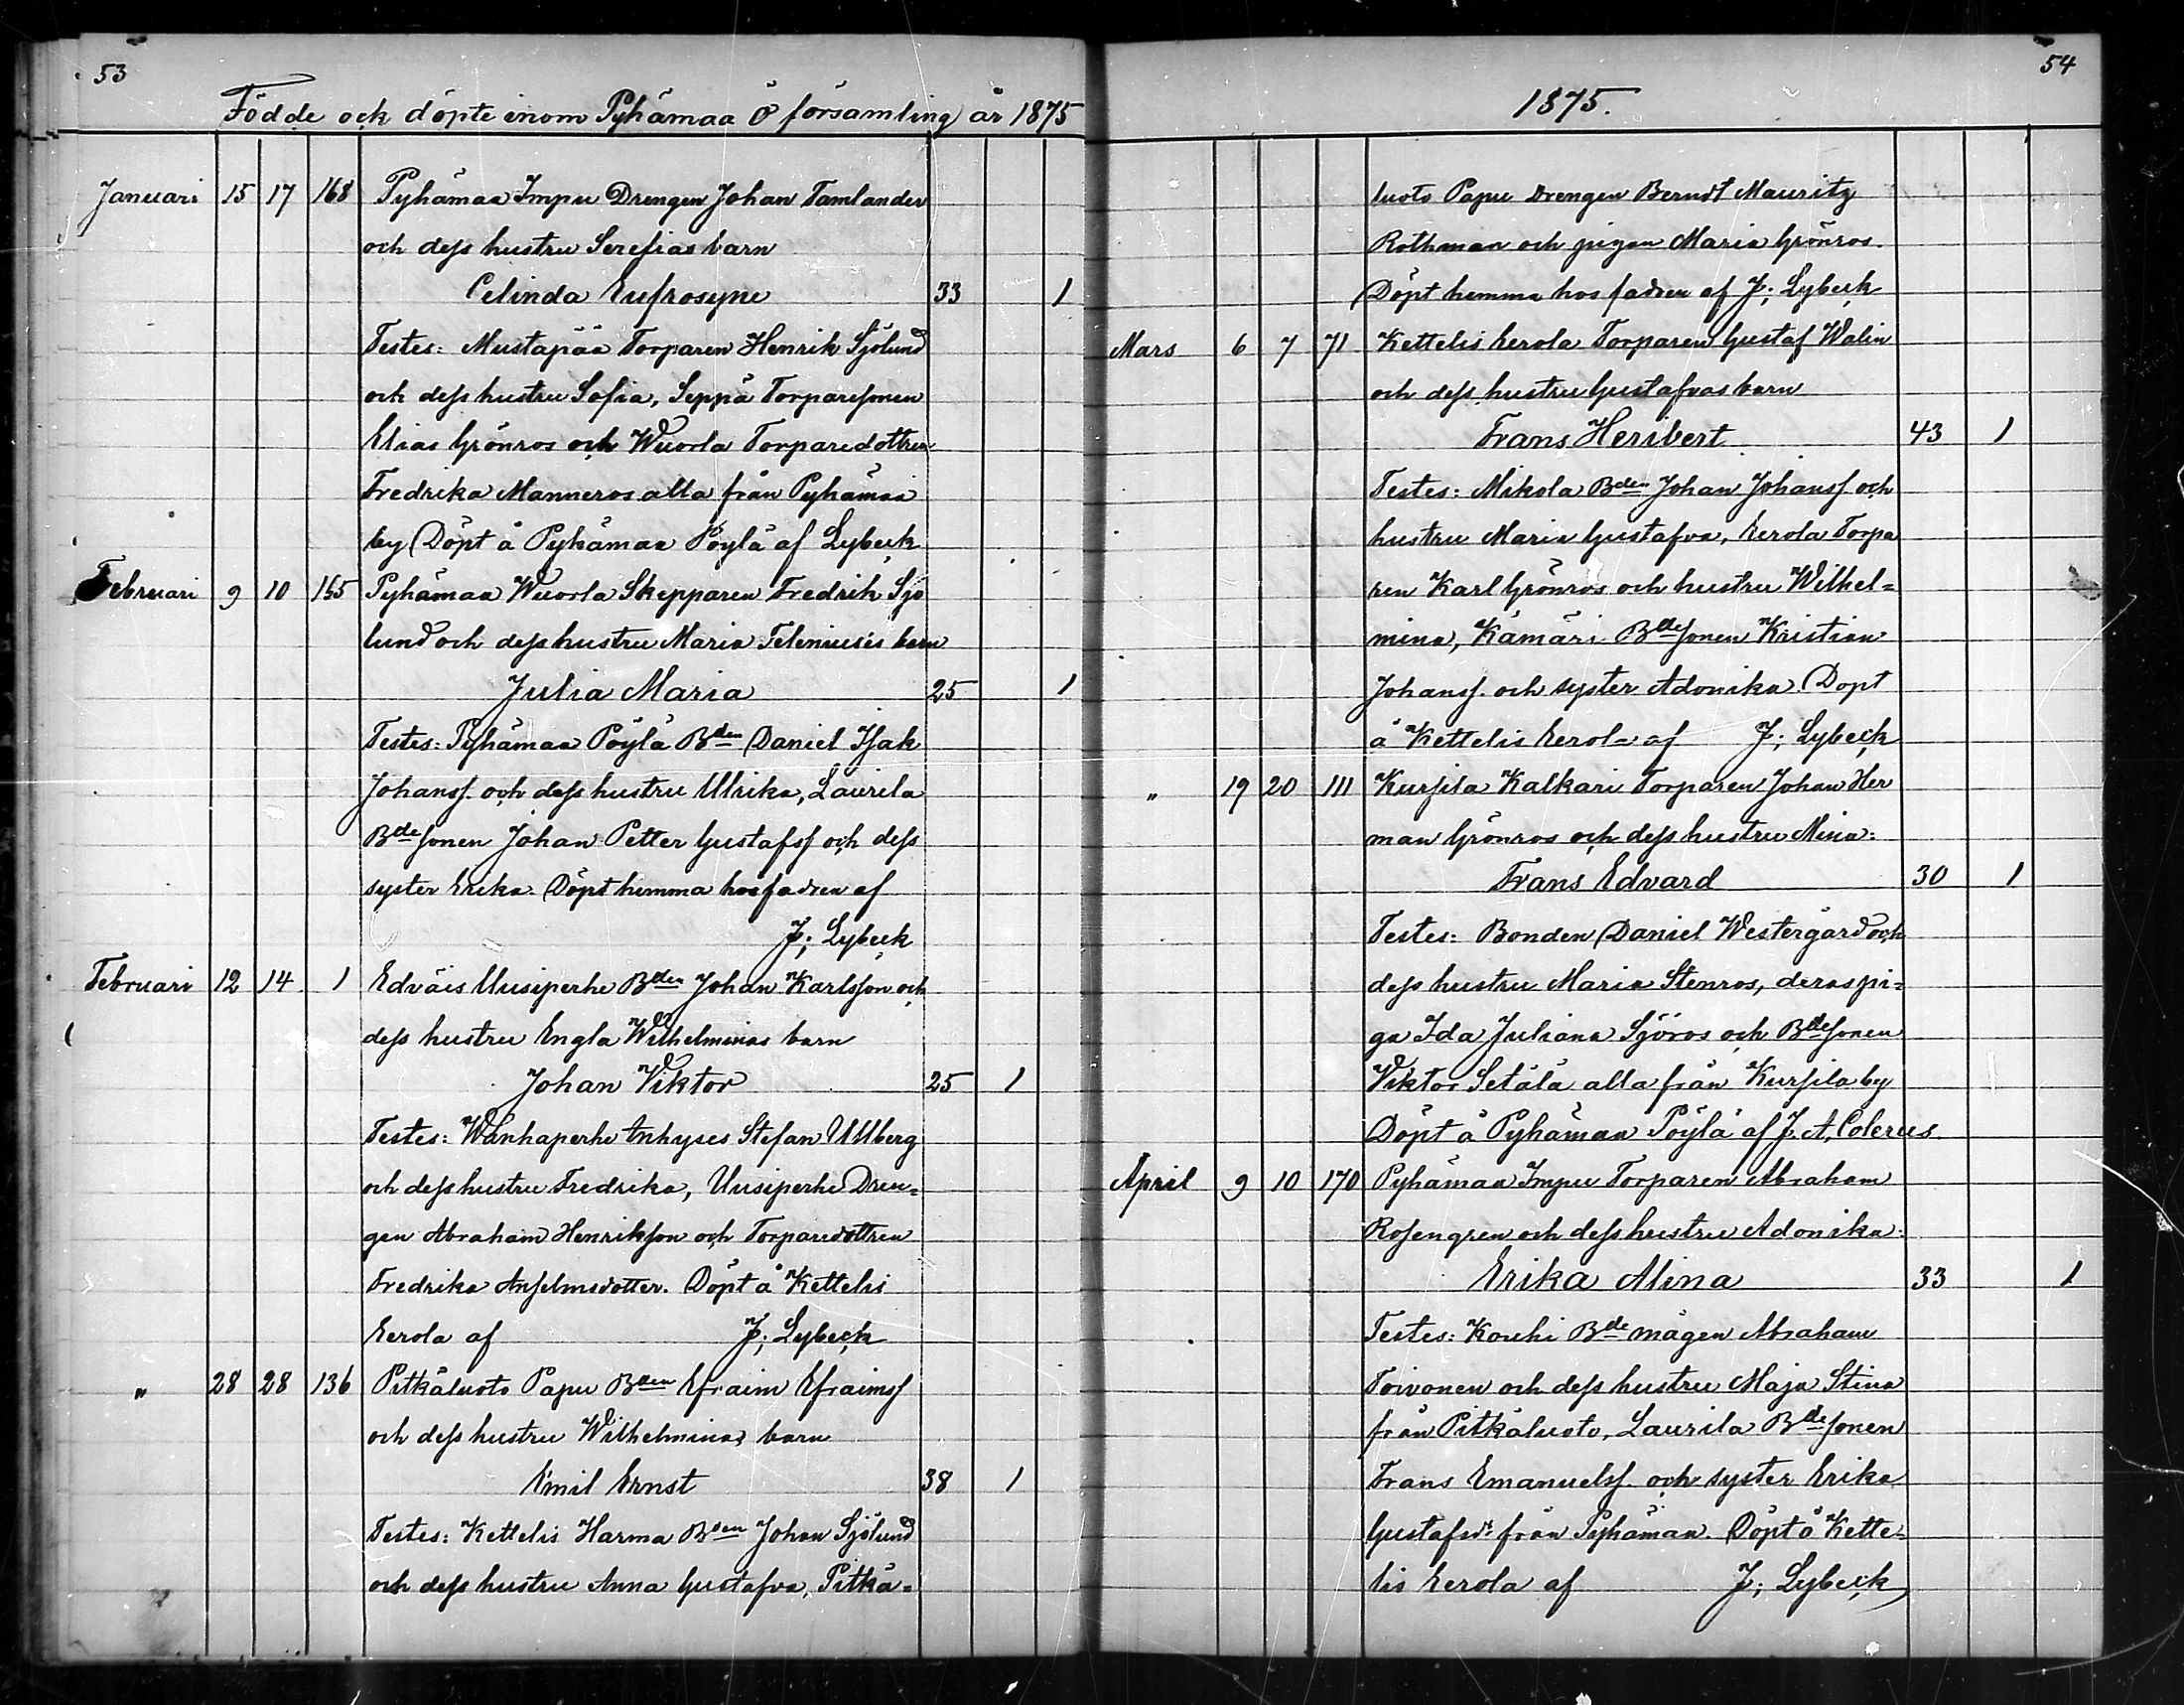 53
Födde och döpte inom Pyhämaa Ö församling år 1875
Januari 15 17 168 Pyhämaa Impu Drengen Johan Tamlander
och dess hustru Serefias barn
Celinda Eufrosyne 33 1
Testes: Mustapää Torparen Henrik Sjölund
och dess hustru Sofia, Seppä Torparesonen
Elias Grönros och Wuorla Torparedottren
Fredrika Manneros alla från Pyhämaa
by Döpt å Pyhämaa Pöylä af Lybeck
Februari 9 10 165 Pyhämaa Wuorla Skepparen Fredrik Sjö
lund och dess hustru Maria Teleniusés barn
Julia Maria 25 1
Testes: Pyhämaa Pöylä Bden Daniel Isak
Johanss. och dess hustru Ulrika, Laurila
Bdesonen Johan Petter Gustafss och dess
syster Erika. Döpt hemma hos fadren af
J; Lybeck
Februari 12 14 1 Edväis Uusiperhe Bden Johan Karlsson och
dess hustru Engla Wilhelminas barn
Johan Viktor 25 1
Testes: Wanhaperhe Inhyses Stefan Ullberg
och dess hustru Fredrika, Uusiperhe Dren-
gen Abraham Henriksson och Torparedottren
Fredrika Anselmsdotter. Döpt å Kettelis
Eerola af J; Lybeck
" 28 28 136 Pitkäluoto Papu Bden Efraim Efraimss
och dess hustru Wilhelminas barn
Emil Ernst 38 1
Testes: Kettelis Harma Bden Johan Sjölund
och dess hustru Anna Gustafva, Pitkä-
54
1875.
luoto Papu Drengen Berndt Mauritz
Rothman och pigan Maria Grönros.
Döpt hemma hos fadren af J; Lybeck
Mars 6 7 71 Kettelis Eerola Torparen Gustaf Walin
och dess hustru Gustafvas barn
Frans Heribert 43 1
Testes: Mikola Bden Johan Johanss och
hustru Maria Gustafva, Eerola Torpa
ren Karl Grönros och hustru Wilhel=
mina, Kämäri Bdesonen Kristian
Johanss. och syster Adonika Döpt
å Kettelis Eerola af J; Lybeck
" 19 20 111 Kursila Kalkari Torparen Johan Her
man Grönros och dess hustru Mina:
Frans Edvard 30 1
Testes: Bonden Daniel Westergård och
dess hustru Maria Stenros, deras pi=
ga Ida Juliana Sjöros och Bdesonen
Viktor Setälä alla från Kursila by
Döpt å Pyhämaa Pöylä af J. A. Colerus
April 9 10 170 Pyhämaa Impu Torparen Abraham
Rosengren och dess hustru Adonika:
Erika Alina 33 1
Testes: Kouhi Bde mågen Abraham
Toivonen och dess hustru Maja Stina
från Pitkäluoto, Laurila Bdesonen
Frans Emanuelss. och syster Erika
Gustafsdr från Pyhämaa. Döpt å Kette-
lis Eerola af J; Lybeck